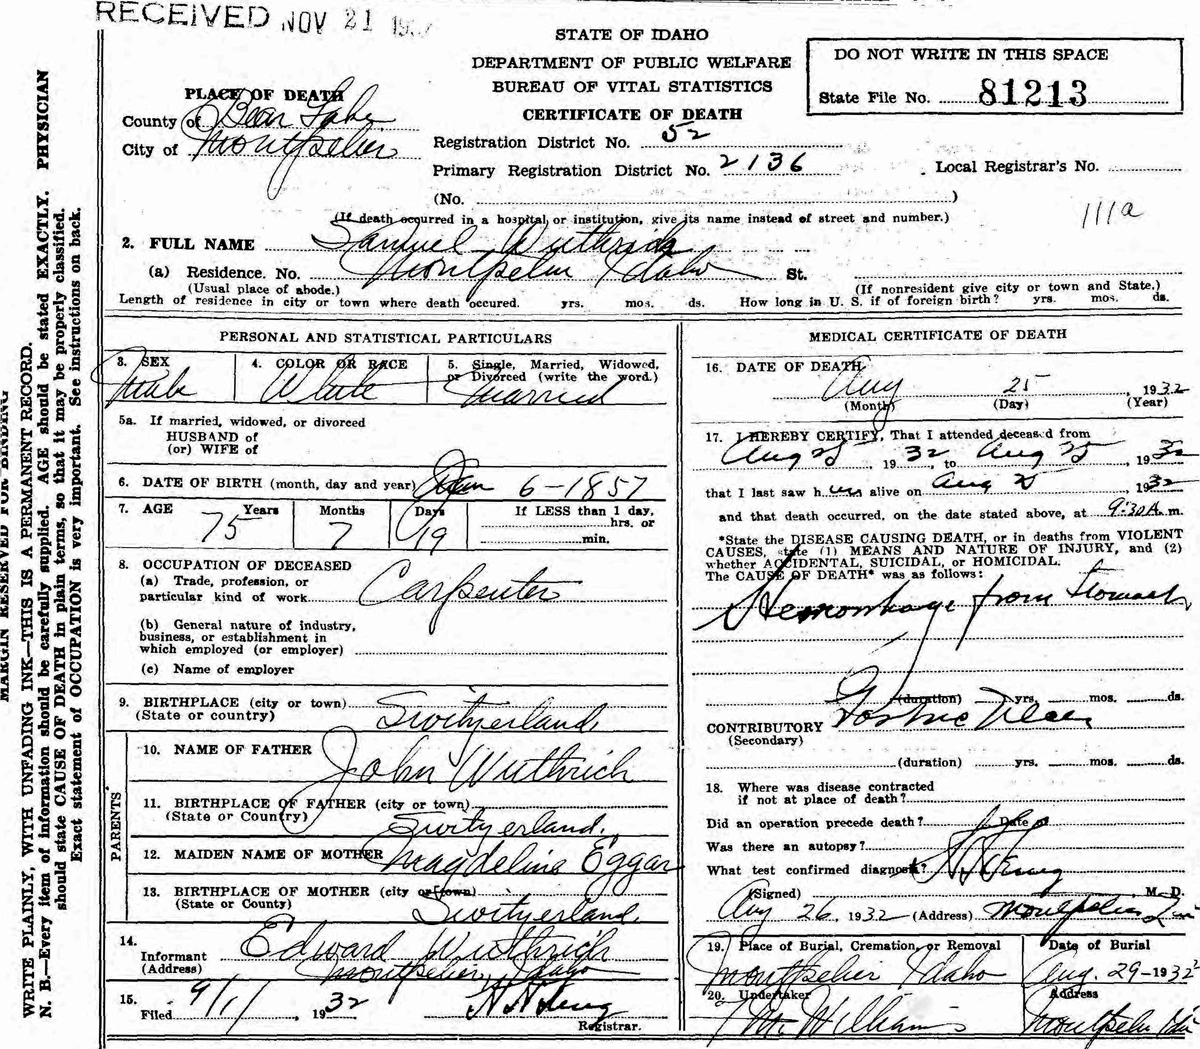 RECEIVED NOV 21 19
STATE OF IDAHO
DEPARTMENT OF PUBLIC WELFARE
BUREAU OF VITAL STATISTICS
CERTIFICATE OF DEATH
DO NOT WRITE IN THIS SPACE
State File No. 81213
PLACE OF DEATH
County of Bear Lake
City of Montpelier
Registration District No. 52
Primary Registration District No. 2136
Local Registrar's No.
(No. )
(If death occurred in a hospital or institution, give its name instead of street and number.)
111a
2. FULL NAME Samuel Wuthrich
(a) Residence. No. Montpelier Idaho St.
(Usual place of abode.) (If nonresident give city or town and State.)
Length of residence in city or town where death occured. yrs. mos. ds. How long in U. S. if of foreign birth? yrs. mos. ds.
PERSONAL AND STATISTICAL PARTICULARS
3. SEX Male
4. COLOR OR RACE White
5. Single, Married, Widowed, or Divorced (write the word.) Married
5a. If married, widowed, or divorced
HUSBAND of
(or) WIFE of
6. DATE OF BIRTH (month, day and year) Jan 6-1857
7. AGE 75 Years 7 Months 19 Days If LESS than 1 day,
hrs. or
min.
8. OCCUPATION OF DECEASED
(a) Trade, profession, or
particular kind of work Carpenter
(b) General nature of industry,
business, or establishment in
which employed (or employer)
(c) Name of employer
9. BIRTHPLACE (city or town)
(State or country) Switzerland
PARENTS
10. NAME OF FATHER
John Wuthrich
11. BIRTHPLACE OF FATHER (city or town)
(State or Country) Switzerland
12. MAIDEN NAME OF MOTHER Magdeline Eggar
13. BIRTHPLACE OF MOTHER (city or town)
(State or County) Switzerland
14.
Informant Edward Wuthrich
(Address) Montpelier, Idaho
15.
Filed 9/1/ 1932
Registrar.
MEDICAL CERTIFICATE OF DEATH
16. DATE OF DEATH
Aug 25, 1932
(Month) (Day) (Year)
17. I HEREBY CERTIFY, That I attended deceased from
Aug 25, 1932, to Aug 25, 1932
that I last saw h im alive on Aug 25 1932
and that death occurred, on the date stated above, at 9:30 A.m.
*State the DISEASE CAUSING DEATH, or in deaths from VIOLENT
CAUSES, state (1) MEANS AND NATURE OF INJURY, and (2)
whether ACCIDENTAL, SUICIDAL, or HOMICIDAL.
The CAUSE OF DEATH* was as follows:
Hemorrhage from Stomach
(duration) yrs. mos. ds.
CONTRIBUTORY Gastric Ulcer
(Secondary)
(duration) yrs. mos. ds.
18. Where was disease contracted
if not at place of death?
Did an operation precede death? Date of
Was there an autopsy?
What test confirmed diagnosis?
(Signed) M. D.
Aug 26, 1932 (Address) Montpelier
19. Place of Burial, Cremation, or Removal Date of Burial
Montpelier Idaho Aug. 29-1932
20. Undertaker Address
Williams Montpelier
MARGIN RESERVED FOR BINDING
WRITE PLAINLY, WITH UNFADING INK—THIS IS A PERMANENT RECORD.
N. B.—Every item of information should be carefully supplied. AGE should be stated EXACTLY. PHYSICIAN
should state CAUSE OF DEATH in plain terms, so that it may be properly classified.
Exact statement of OCCUPATION is very important. See instructions on back.